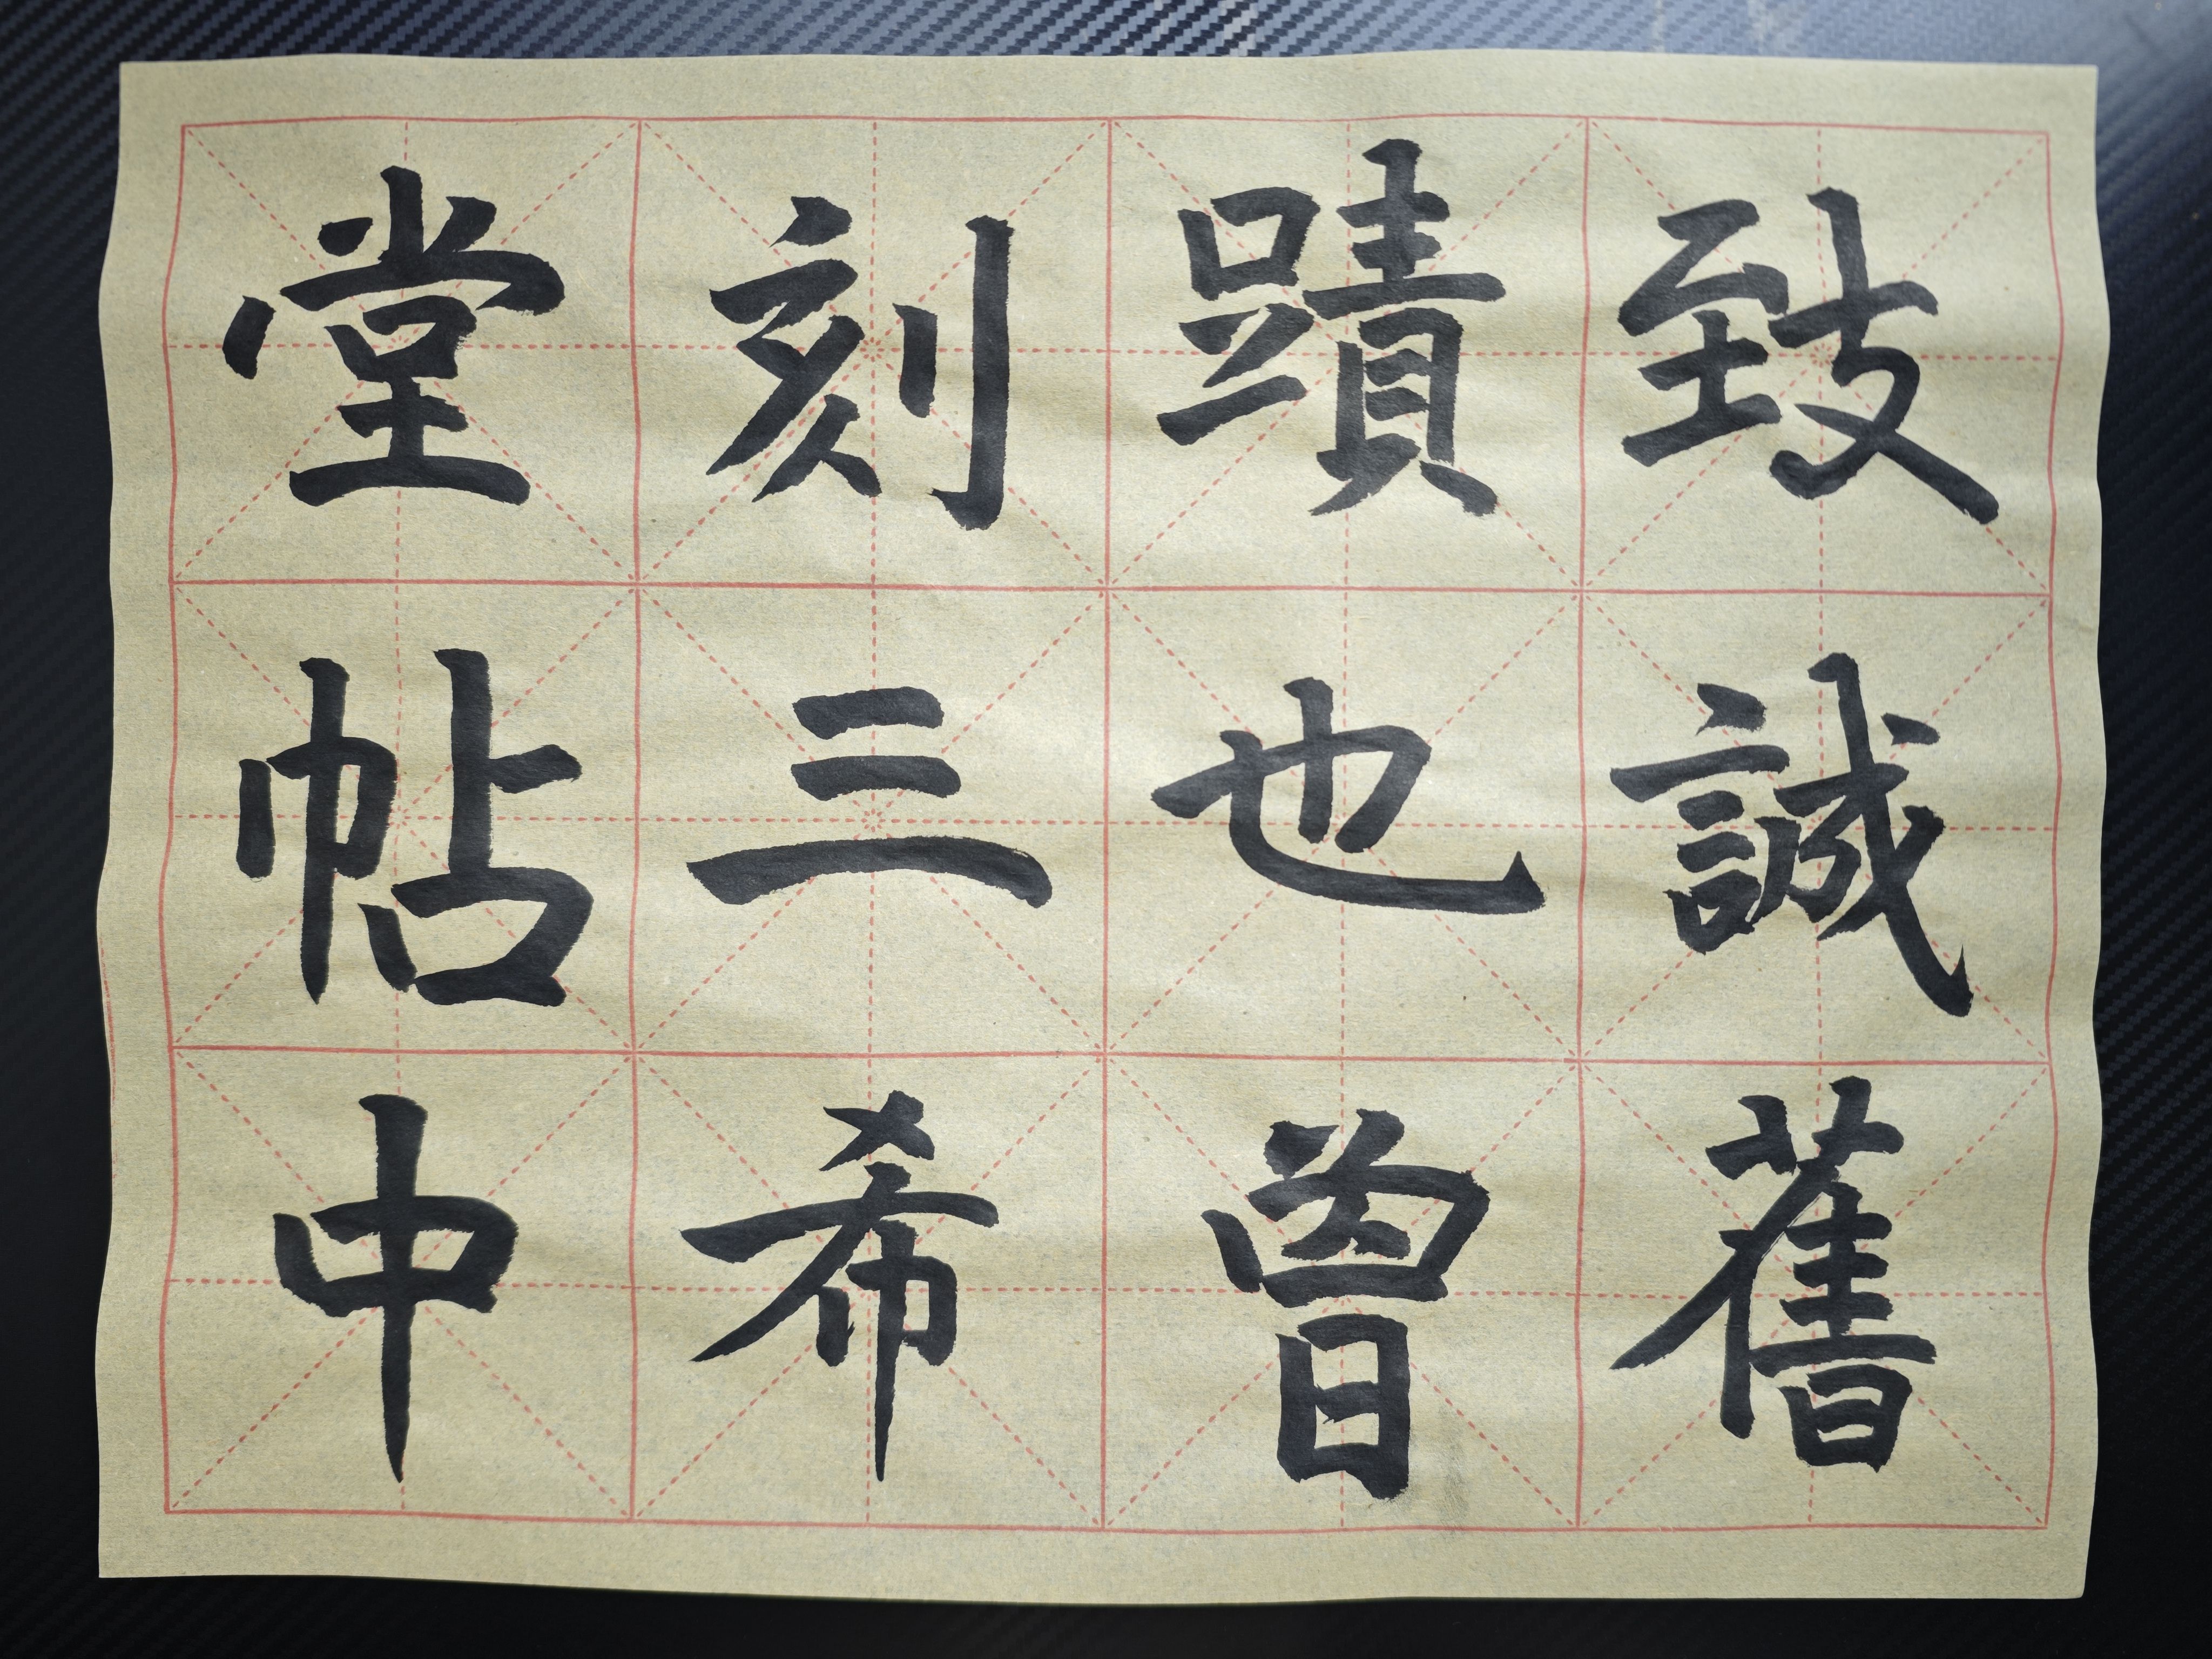 致誠舊
蹟也曾
刻三希
堂帖中